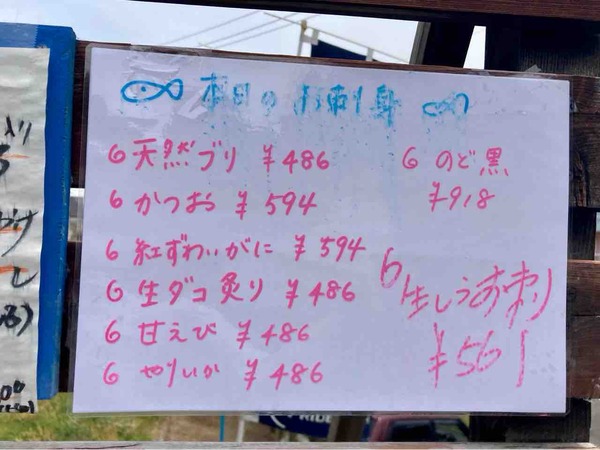 本日のお刺身
6 天然ブリ ¥486
6 かつお ¥594
6 紅ずわいがに ¥594
6 生ダコ炙り ¥486
6 甘えび ¥486
6 やりいか ¥486
6 のど黒
¥918
6 生しらす刺り
¥561